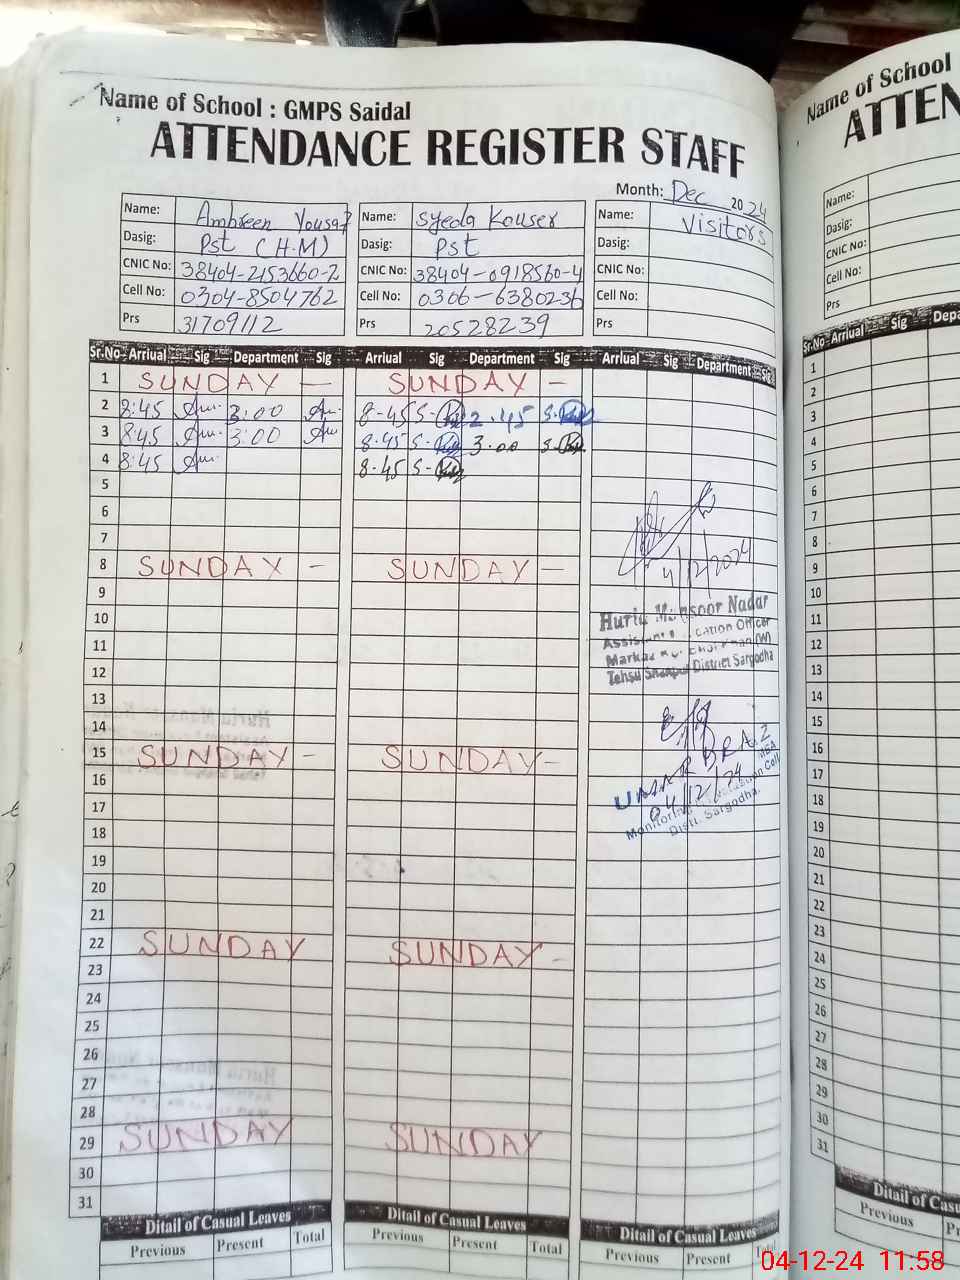 Name of School : GMPS Saidal
ATTENDANCE REGISTER STAFF
Month: Dec 2024
Name: Ambreen Yousaf Name: Syeda Kouser Name: Visitors
Dasig: Pst (H.M) Dasig: Pst Dasig:
CNIC No: 38404-2153660-2 CNIC No: 38404-0918560-4 CNIC No:
Cell No: 0304-8504762 Cell No: 0306-6380236 Cell No:
Prs 31709112 Prs 20528239 Prs
Sr.No Arriual Sig Department Sig Arriual Sig Department Sig Arriual Sig Department Sig
1 SUNDAY — SUNDAY —
2 8:45 3:00 8-45 2.45
3 8:45 3:00 8.45 3.00
4 8:45 8.45
5
6
7
8 SUNDAY — SUNDAY —
9
10
11
12
13
14
15 SUNDAY — SUNDAY —
16
17
18
19
20
21
22 SUNDAY SUNDAY —
23
24
25
26
27
28
29 SUNDAY SUNDAY
30
31
4/12/2024
Huria Mansoor Nadar
Officer
Tehsil District Sargodha
UMAR DRAZ
04/12/24 MEA
Monitoring Cell
Distt. Sargodha.
Ditail of Casual Leaves Ditail of Casual Leaves Ditail of Casual Leaves
Previous Present Total Previous Present Total Previous Present Total
Name of School
ATTEN
Name:
Dasig:
CNIC No:
Cell No:
Prs
Sr.No Arriual Sig Depa
1
2
3
4
5
6
7
8
9
10
11
12
13
14
15
16
17
18
19
20
21
22
23
24
25
26
27
28
29
30
31
Ditail of Cas
Previous Pr
04-12-24 11:58